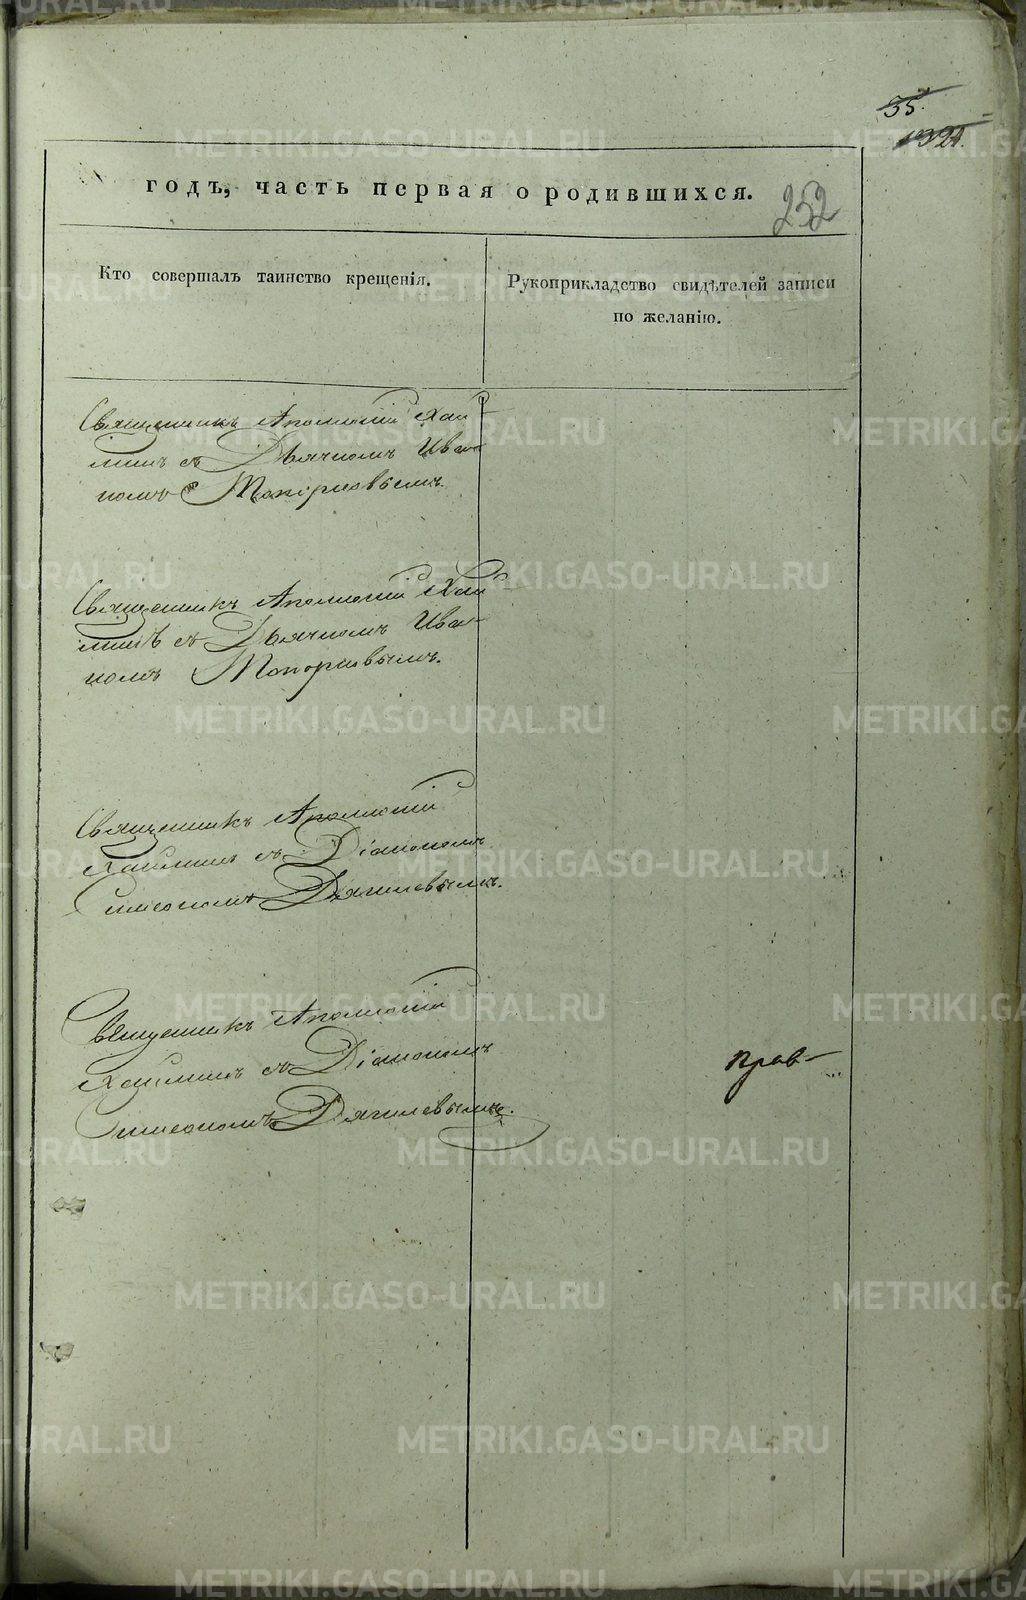 35.
1324.
годъ, часть первая о родившихся.
252
Кто совершалъ таинство крещенія.
Рукоприкладство свидѣтелей записи
по желанію.
Священникъ Аполлоній Хай
минъ съ Дьячкомъ Ива
номъ Топорковымъ.
Священникъ Аполлоній Хай
минъ съ Дьячкомъ Ива
номъ Топорковымъ.
Священникъ Аполлоній
Хайминъ съ Діакономъ
Симеономъ Дягилевымъ.
Священникъ Аполлоній
Хайминъ съ Діакономъ
Симеономъ Дягилевымъ.
прав-
METRIKI.GASO-URAL.RU